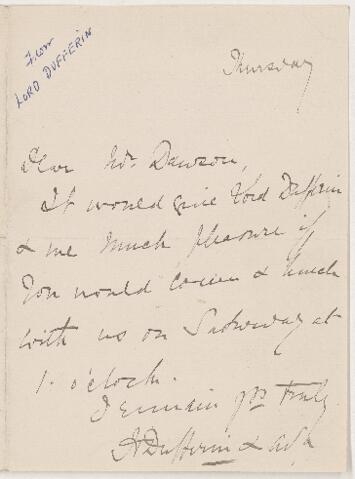 From
LORD DUFFERIN
Thursday
Dear Mr. Dawson,
It would give Lord Dufferin
& me much pleasure if
You would come & lunch
with us on Saturday at
1. o'clock.
I remain yrs truly
Dufferin & Ava